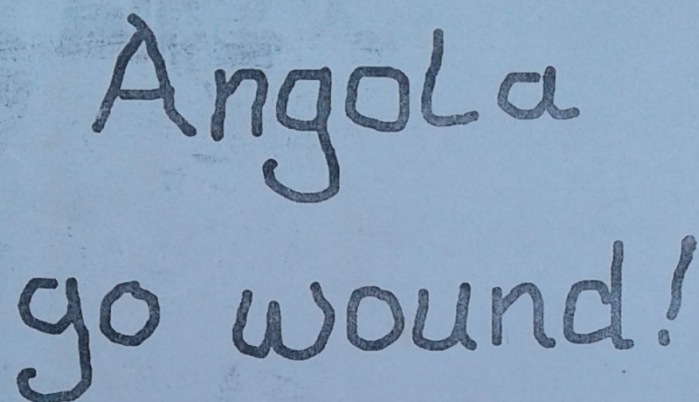 Angola
go wound!